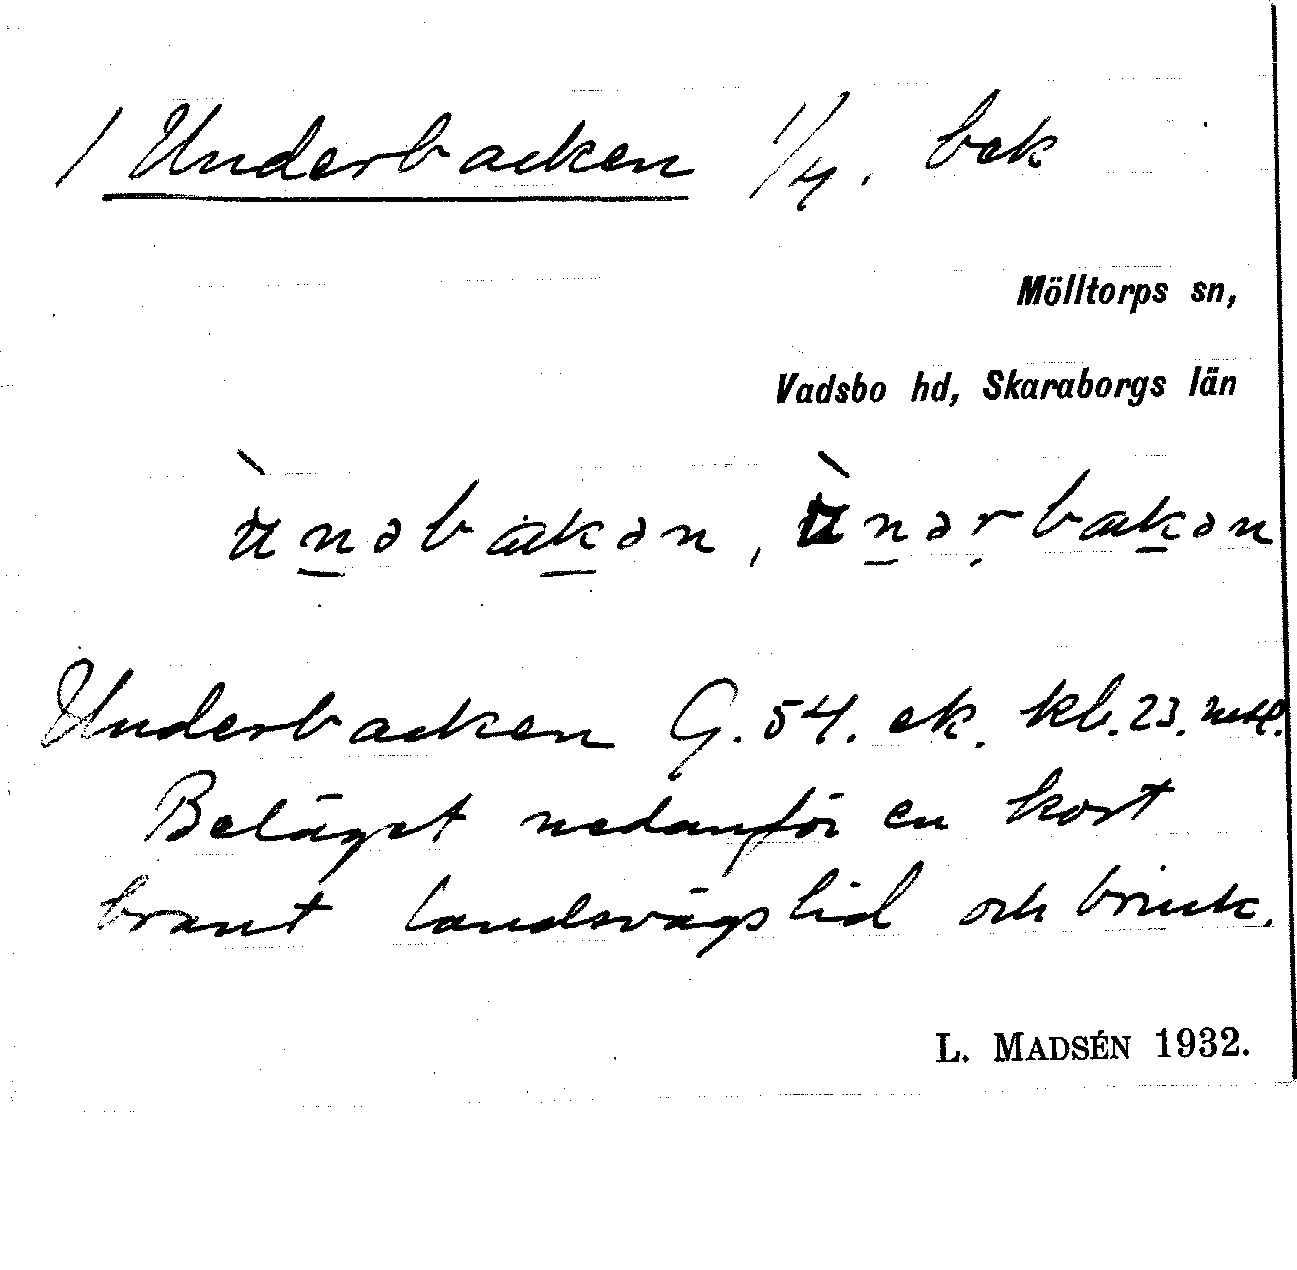 1 Underbacken 1/4. bek
Mölltorps sn,
Vadsbo hd, Skaraborgs län
ùnəbakən, ùnərbakən
Underbacken G. 54. ek. kb. 23.
Beläget nedanför en kort
brant landsvägslid och brink.
L. MADSÉN 1932.